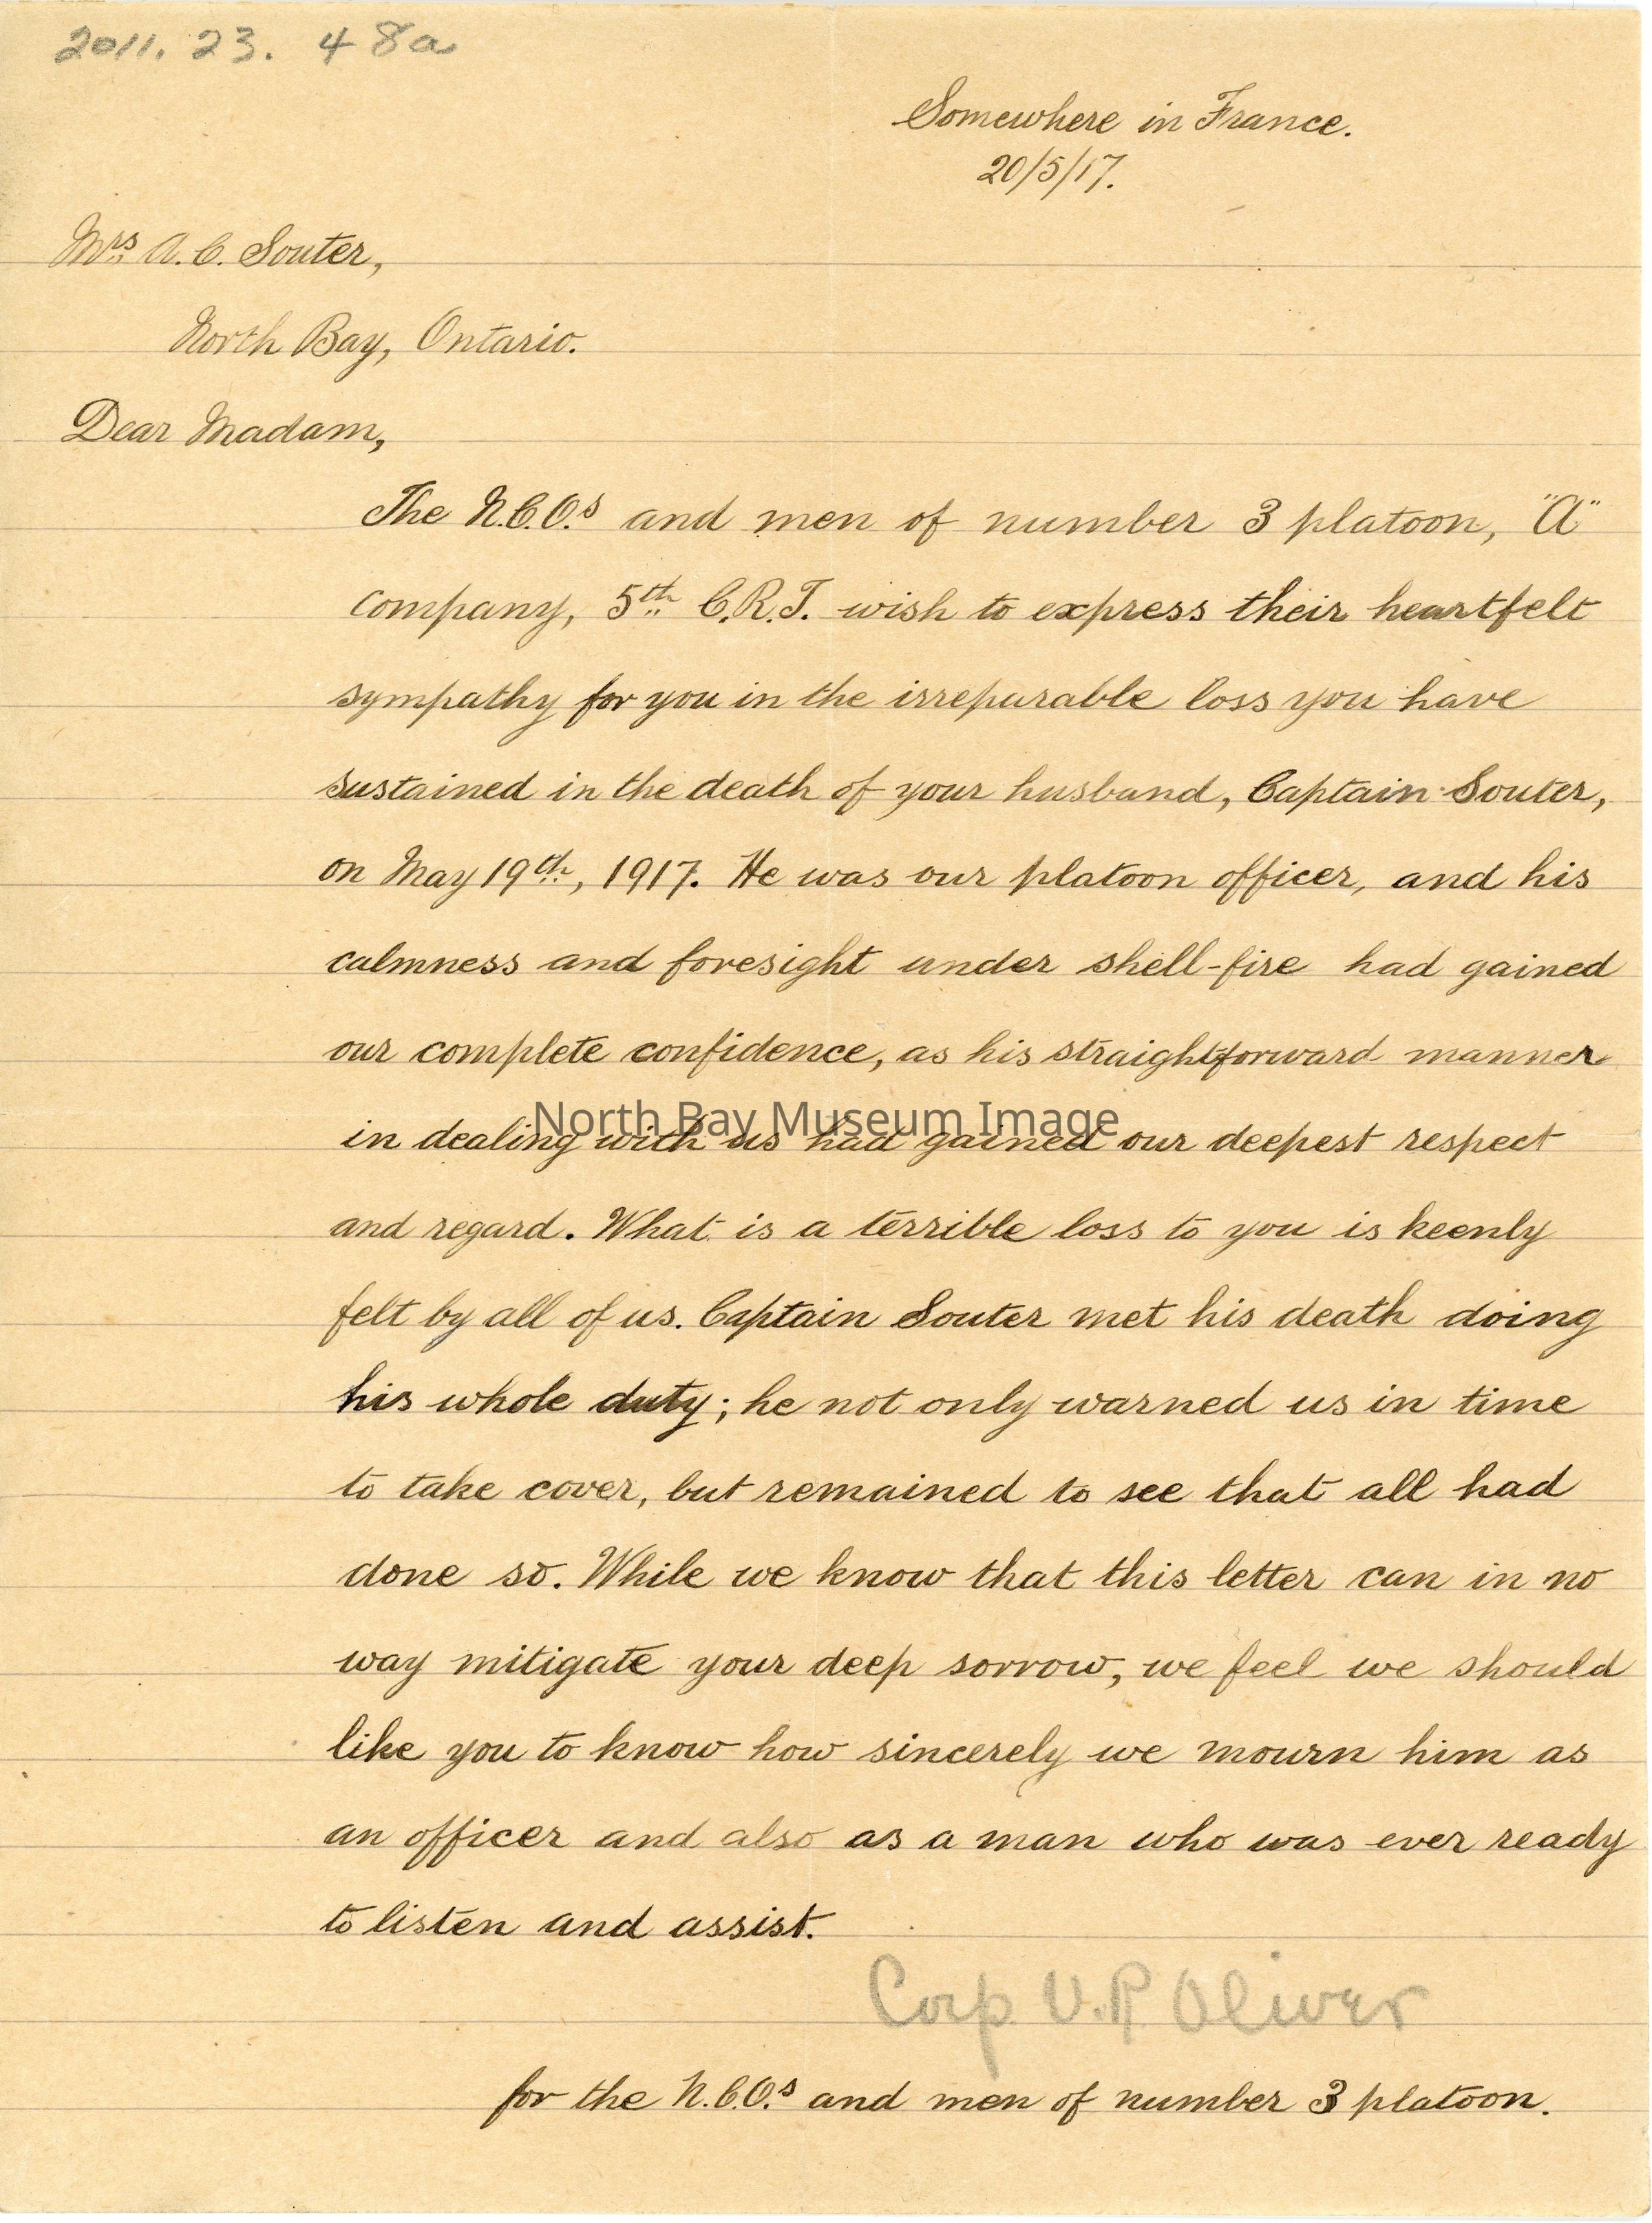 2011. 23. 48a
Somewhere in France.
20/5/17.
Mrs A. C. Souter,
North Bay, Ontario.
Dear Madam,
The N.C.O.s and men of number 3 platoon, "A"
Company, 5th C.R.T. wish to express their heartfelt
sympathy for you in the irreparable loss you have
sustained in the death of your husband, Captain Souter,
on May 19th, 1917. He was our platoon officer, and his
calmness and foresight under shell-fire had gained
our complete confidence, as his straightforward manner
North Bay Museum Image
in dealing with us had gained our deepest respect
and regard. What is a terrible loss to you is keenly
felt by all of us. Captain Souter met his death doing
his whole duty; he not only warned us in time
to take cover, but remained to see that all had
done so. While we know that this letter can in no
way mitigate your deep sorrow, we feel we should
like you to know how sincerely we mourn him as
an officer and also as a man who was ever ready
to listen and assist.
Corp V. R Oliver
for the N.C.O.s and men of number 3 platoon.